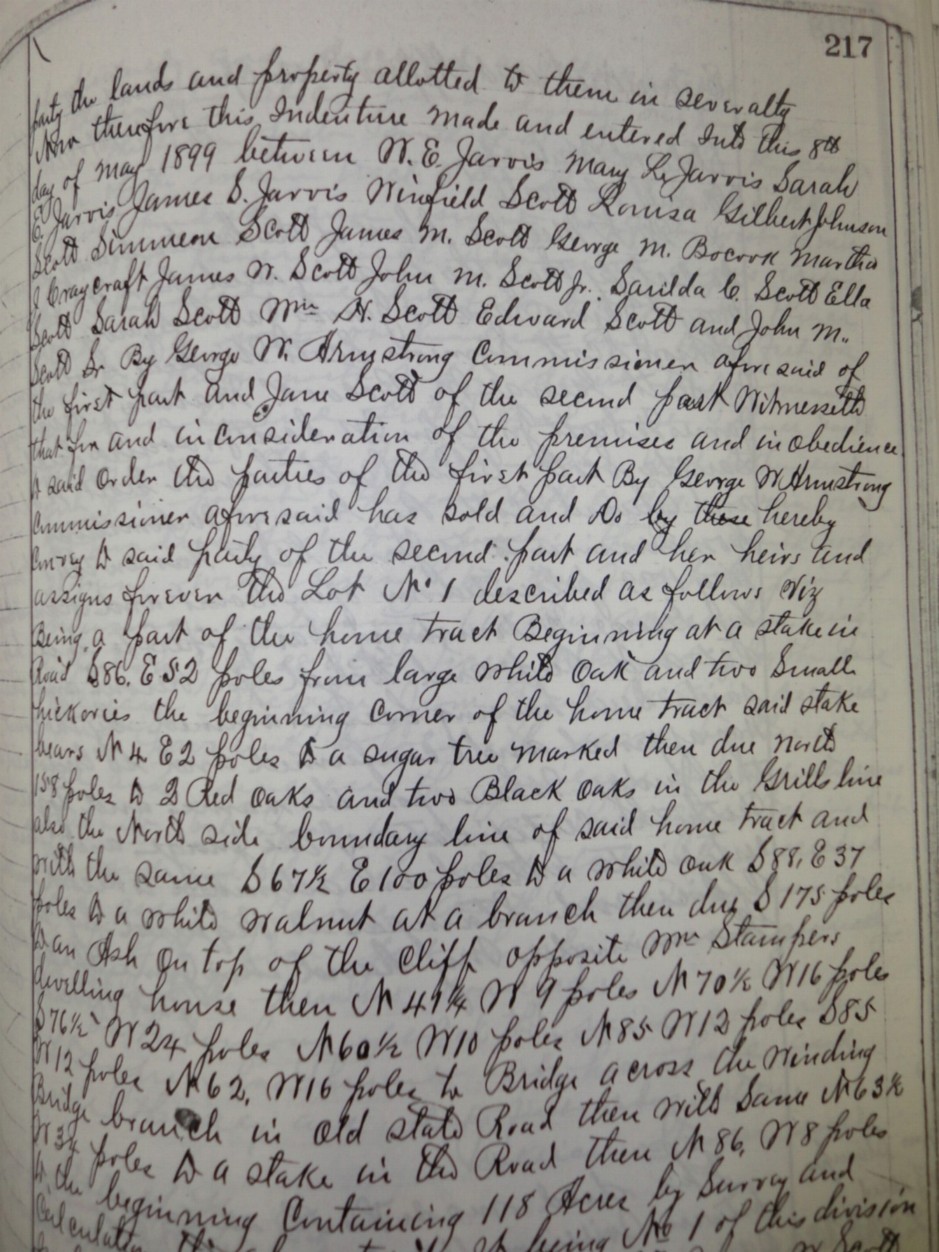 217
party the lands and property allotted to them in severalty
Now therefore this Indenture made and entered into this 8th
day of may 1899 between W. E. Jarvis Mary L. Jarvis Sarah
E. Jarvis James S. Jarvis Winfield Scott Louisa Gilbert Johnson
Scott Simmeon Scott James M. Scott George M. Bocook Martha
J Craycraft James W. Scott John M. Scott Jr. Sarilda C. Scott Ella
Scott Sarah Scott Wm H. Scott Edward Scott and John M.
Scott Sr By George W. Armstrong Commissioner aforesaid of
the first part and Jane Scott of the second part Witnesseth
that for and in Consideration of the premises and in obedience
to said order the parties of the first part By George W Armstrong
Commissioner aforesaid has sold and do by these hereby
Convey to said party of the second part and her heirs and
assigns forever the Lot No 1 described as follows Viz
Being a part of the home tract Beginning at a stake in
Road S86. E 52 poles from large white oak and two small
hickories the beginning Corner of the home tract said stake
bears N 4 E2 poles to a sugar tree marked then due north
158 poles to 2 Red oaks and two Black oaks in the Grills line
also the North side boundary line of said home tract and
with the same S 67½ E 100 poles to a white oak S88. E 37
poles to a white walnut at a branch then due S 175 poles
to an Ash on top of the Cliff opposite Wm Stampers
dwelling house then N 41¼ W 9 poles N 70½ W16 poles
S 76½ W 24 poles N60½ W10 poles N85 W12 poles S85
W12 poles N62. W16 poles to Bridge across the Winding
Bridge branch in old state Road then with Same N63½
W34 poles to a stake in the Road then N 86. W8 poles
to the beginning Containing 118 Acres by Survey and
Calculation being No 1 of this division